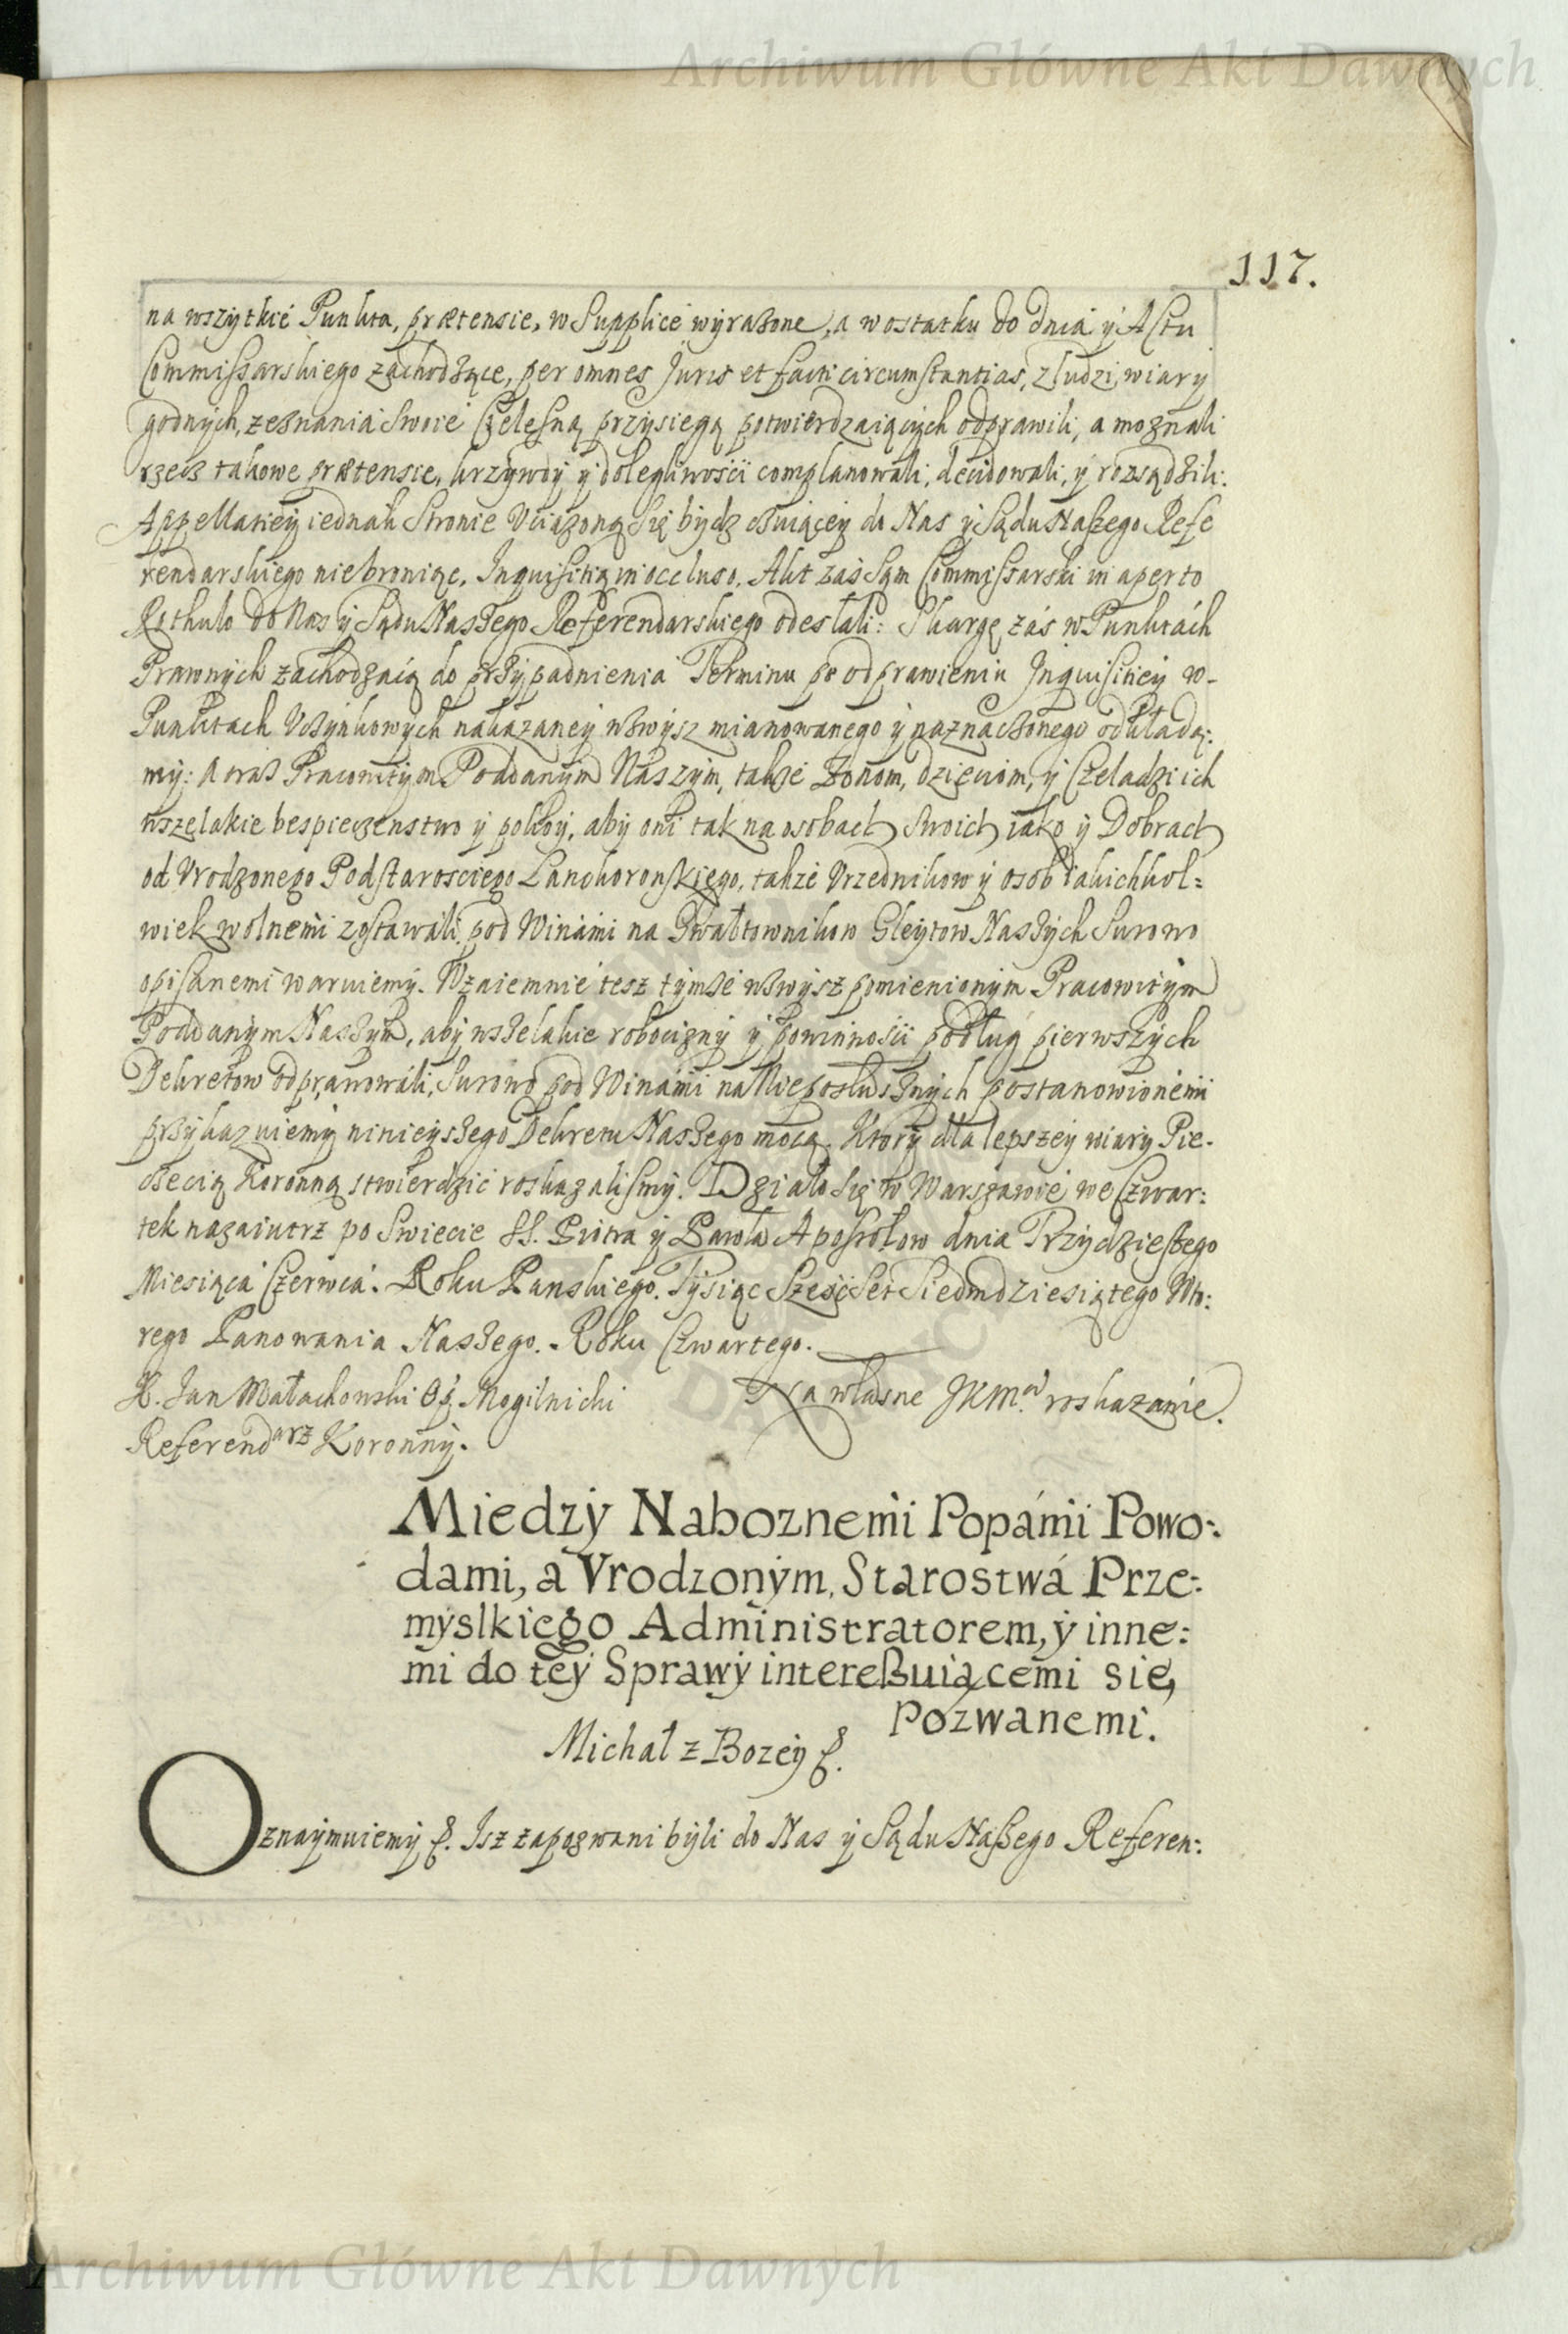 Archiwum Główne Akt Dawnych
117.
na wszytkie Punkta, prætensie, w Supplice wyrażone, a w ostatku do dnia y Actu
Commissarskiego zachodzące, per omnes Juris et facti circumstantias, z ludzi wiary
godnych, zeznania swoie Czelesną przysięgą potwierdzaiących odprawili, a mognali
rzecz takowe prætensie, krzywdy y dolegliwości complanowali, decidowali, y rozsądzili.
Appellatiey iednak Stronie Uciążoną się bydz czuiącey do Nas y Sądu Naszego Refe
rendarskiego niebroniąc, Inquisitią in occluso, Akt zaś sąm Commissarski in aperto
Rothulo do Nas y Sądu Naszego Referendarskiego odesłali: Skargę zaś w Punktách
Prawnych zachodzaią do przypadnienia Terminu po odprawieniu Inquisitiey w-
Punktach Uczynkowych nakazaney wzwysz mianowanego y naznaczonego odkłada:
my: A oraz Pracowitym Poddanym Naszym, także Żonom, dzieciom, y Czeladzi ich
wszelakie bespieczenstwo y pokoy, aby oni tak na osobach swoich iako y Dobrach
od Vrodzonego Podstarosciego Lanckoronskiego, także Vrzednikow y osob iakichkol=
wiek wolnemi zostawali, pod Winami na Gwałtownikow Gleytow Naszych Surowo
opisanemi waruiemy. Wzaiemnie tesz tymże wzwysz pomienionym Pracowitym
Poddanym Naszym, aby wszelakie robocizny y powinności podług pierwszych
Dekretow odprawowáli, Surowo pod Winámi na Nieposłusznych postanowionemi
przykazuiemy ninieyszego Dekretu Naszego mocą. Ktory dla lepszey wiary Pie-
częcią Koronną stwierdzić roskazaliśmy. Działo się w Warszawie we Czwar:
tek nazaiutrz po Swiecie SS. Piotra y Pawła Apostołow dnia Trzydziestego
Miesiąca Czerwca. Roku Panskiego. Tysiąc Sześć Set Siedmdziesiątego Wto:
rego Panowania Naszego. Roku Czwartego.
X. Jan Małachowski Op. Mogilnicki
Referendarz Koronny.
Na własne JKMci roskazanie.
Miedzy Naboznemi Popámi Powo:
dami, a Vrodzonym, Starostwá Prze:
myslkiego Administratorem, y inne:
mi do tey Sprawy intereßuiącemi się,
Pozwanemi.
Michał z Bozey &.
Oznaymuiemy &. Isz zapozwani byli do Nas y Sądu Naszego Referen:
Archiwum Główne Akt Dawnych